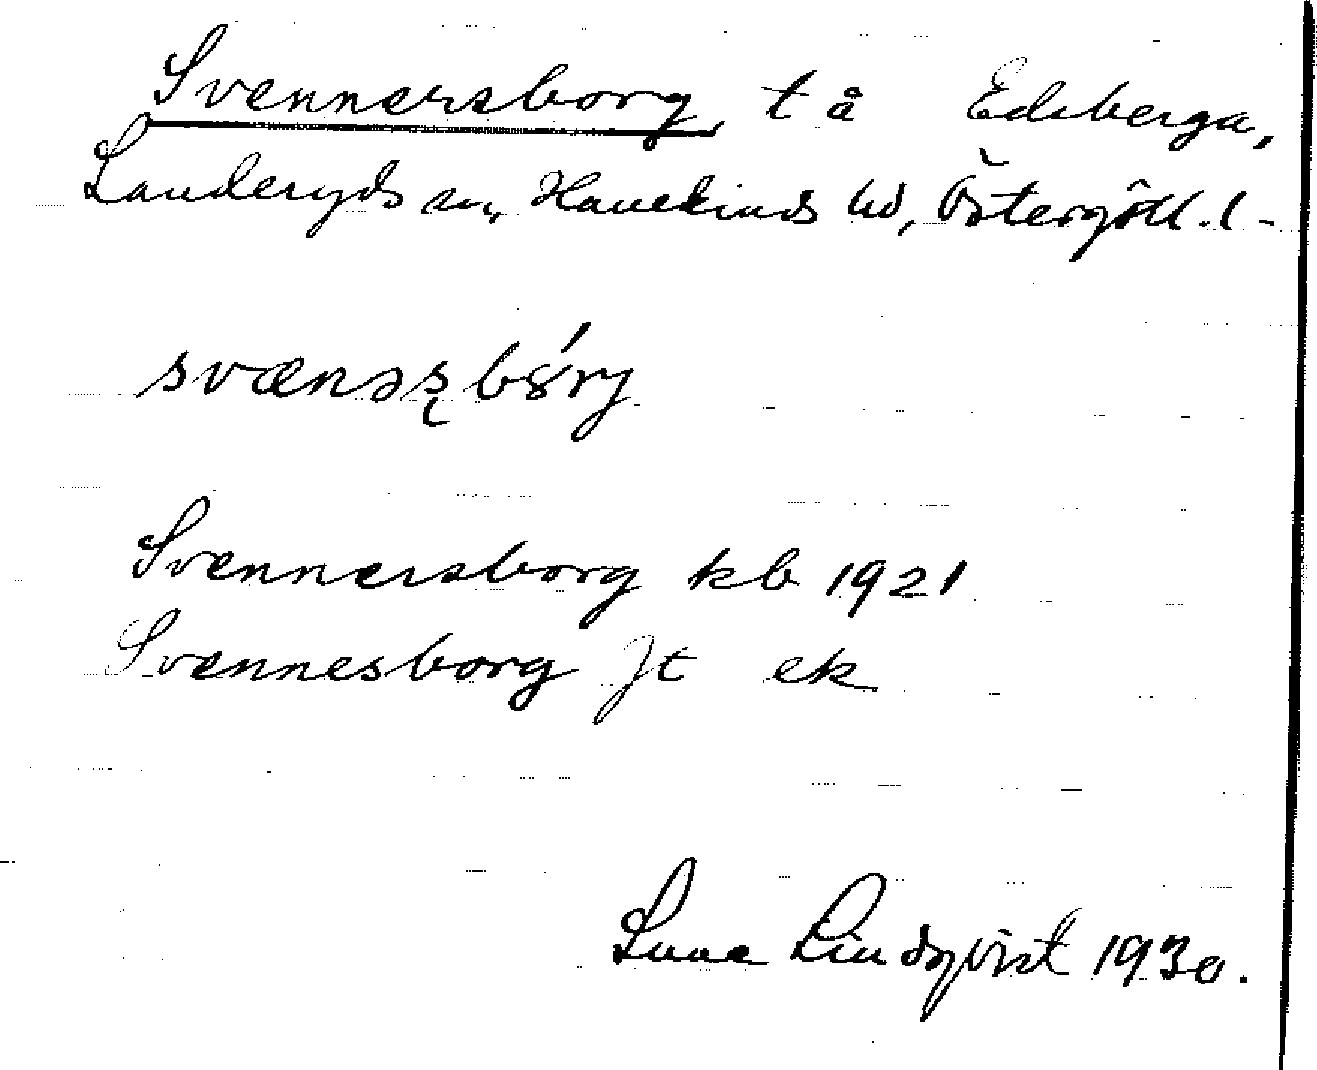 Svennersborg, t å Edsberga,
Landeryds sn, Hanekinds hd, Östergötl. l.
svænəsbɷ́rj
Svennersborg kb 1921
Svennesborg Jt ek
Lindqvist 1930.